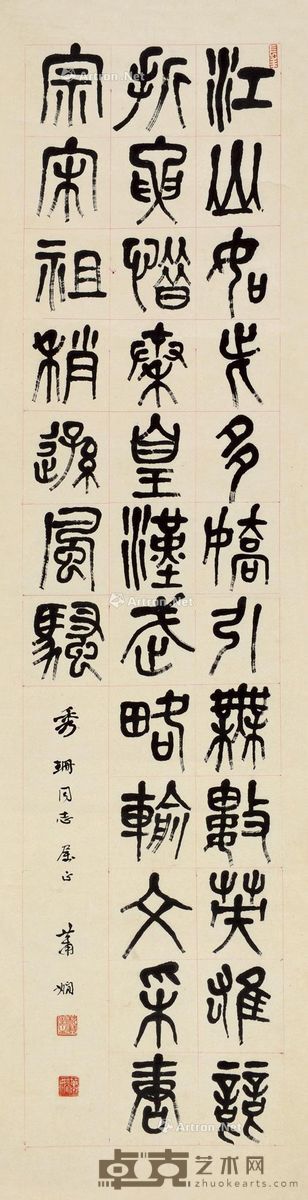 江山如此多嬌引無數英雄競
折腰惜秦皇漢武略輸文采唐
宗宋祖稍遜風騷
秀珊同志屬正 蕭嫻
Artron.Net
卓克艺术网
zhuokearts.com